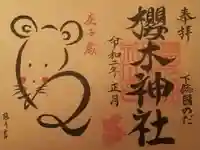 奉拝
下総国のだ
櫻木神社
令和二年正月
庚子歳